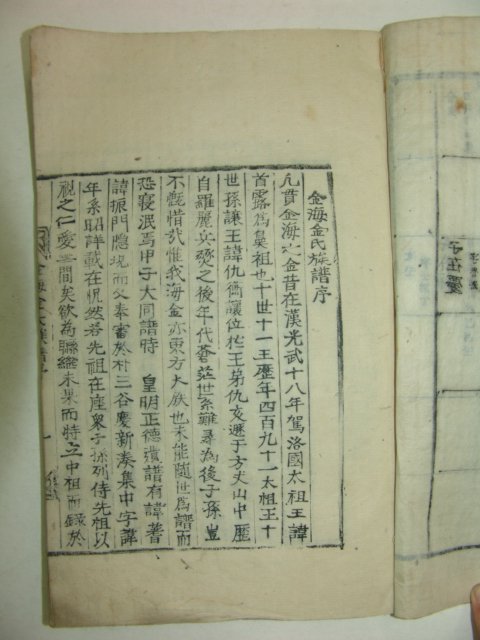 金海金氏族譜序
凡貫金海之金昔在漢光武十八年駕洛國太祖王諱
首露為鼻祖也十世十一王歷年四百九十一太祖王十
世孫讓王諱仇衡讓位於王弟仇亥遯于方丈山中歷
自羅麗兵燹之後年代蒼茫世系難尋為後子孫豈
不慨惜哉惟我海金亦東方大族也未能隨世為譜而
恐寢泯焉甲子大同譜時 皇明正德遺譜有諱著
諱振門隱現而又奉審於村三谷慶新湊集中字諱
年系昭詳載在怳然若先祖在座衆子孫列侍先祖以
視之仁愛世間矣欲為聯綸未果而特立中祖而錄於